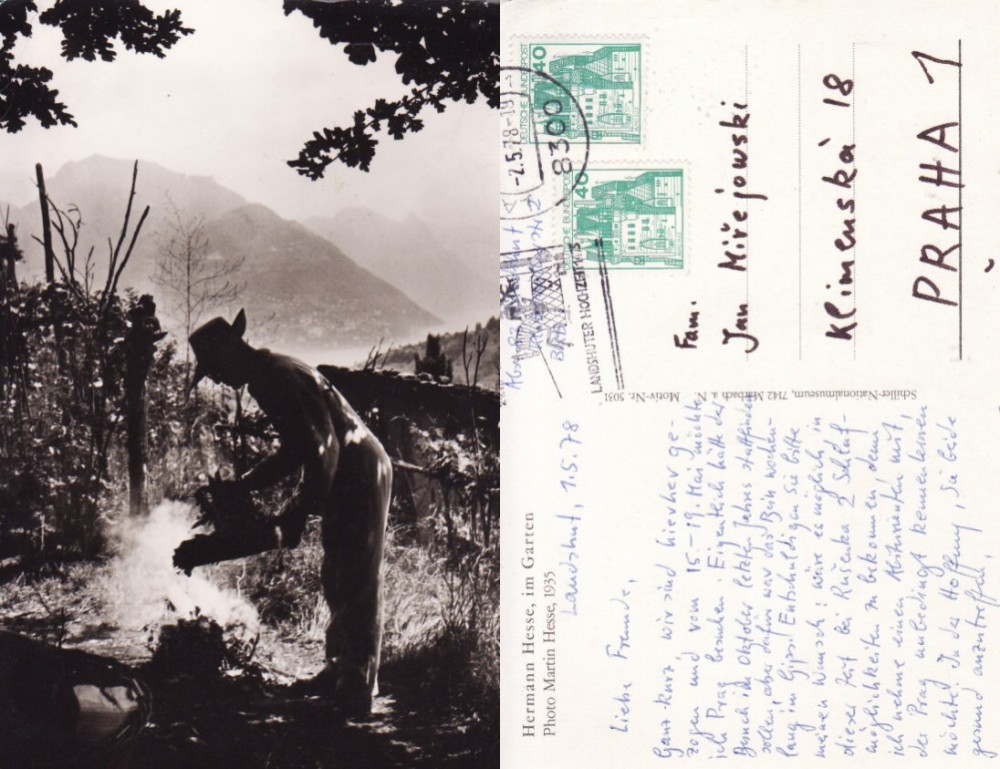 Hermann Hesse, im Garten
Photo Martin Hesse, 1935
Landshut, 1.5.78
Liebe Freunde,
Ganz kurz, wir sind hierher ge-
zogen und vom 15.-19. Mai möchte
ich Prag besuchen. Eigentlich hätte der
Besuch im Oktober letzten Jahres stattfinden
sollen, aber dafür war das Bein wochen-
lang in Gips. Entschuldigen Sie bitte
meinen Wunsch: wäre es möglich in
dieser Zeit bei Růšenka 2 Schlaf-
möglichkeiten zu bekommen, denn
ich nehme einen Abiturienten mit,
der Prag unbedingt kennenlernen
möchte! In der Hoffnung, Sie beide
gesund anzutreffen!
Schiller-Nationalmuseum, 7142 Marbach a. N. Motiv-Nr. 5031
DEUTSCHE BUNDESPOST 40
DEUTSCHE BUNDESPOST 40
-2.5.78-19
8300
LANDSHUTER HOCHZEIT
Fam.
Jan Miřejowski
Klimenská 18
PRAHA 1